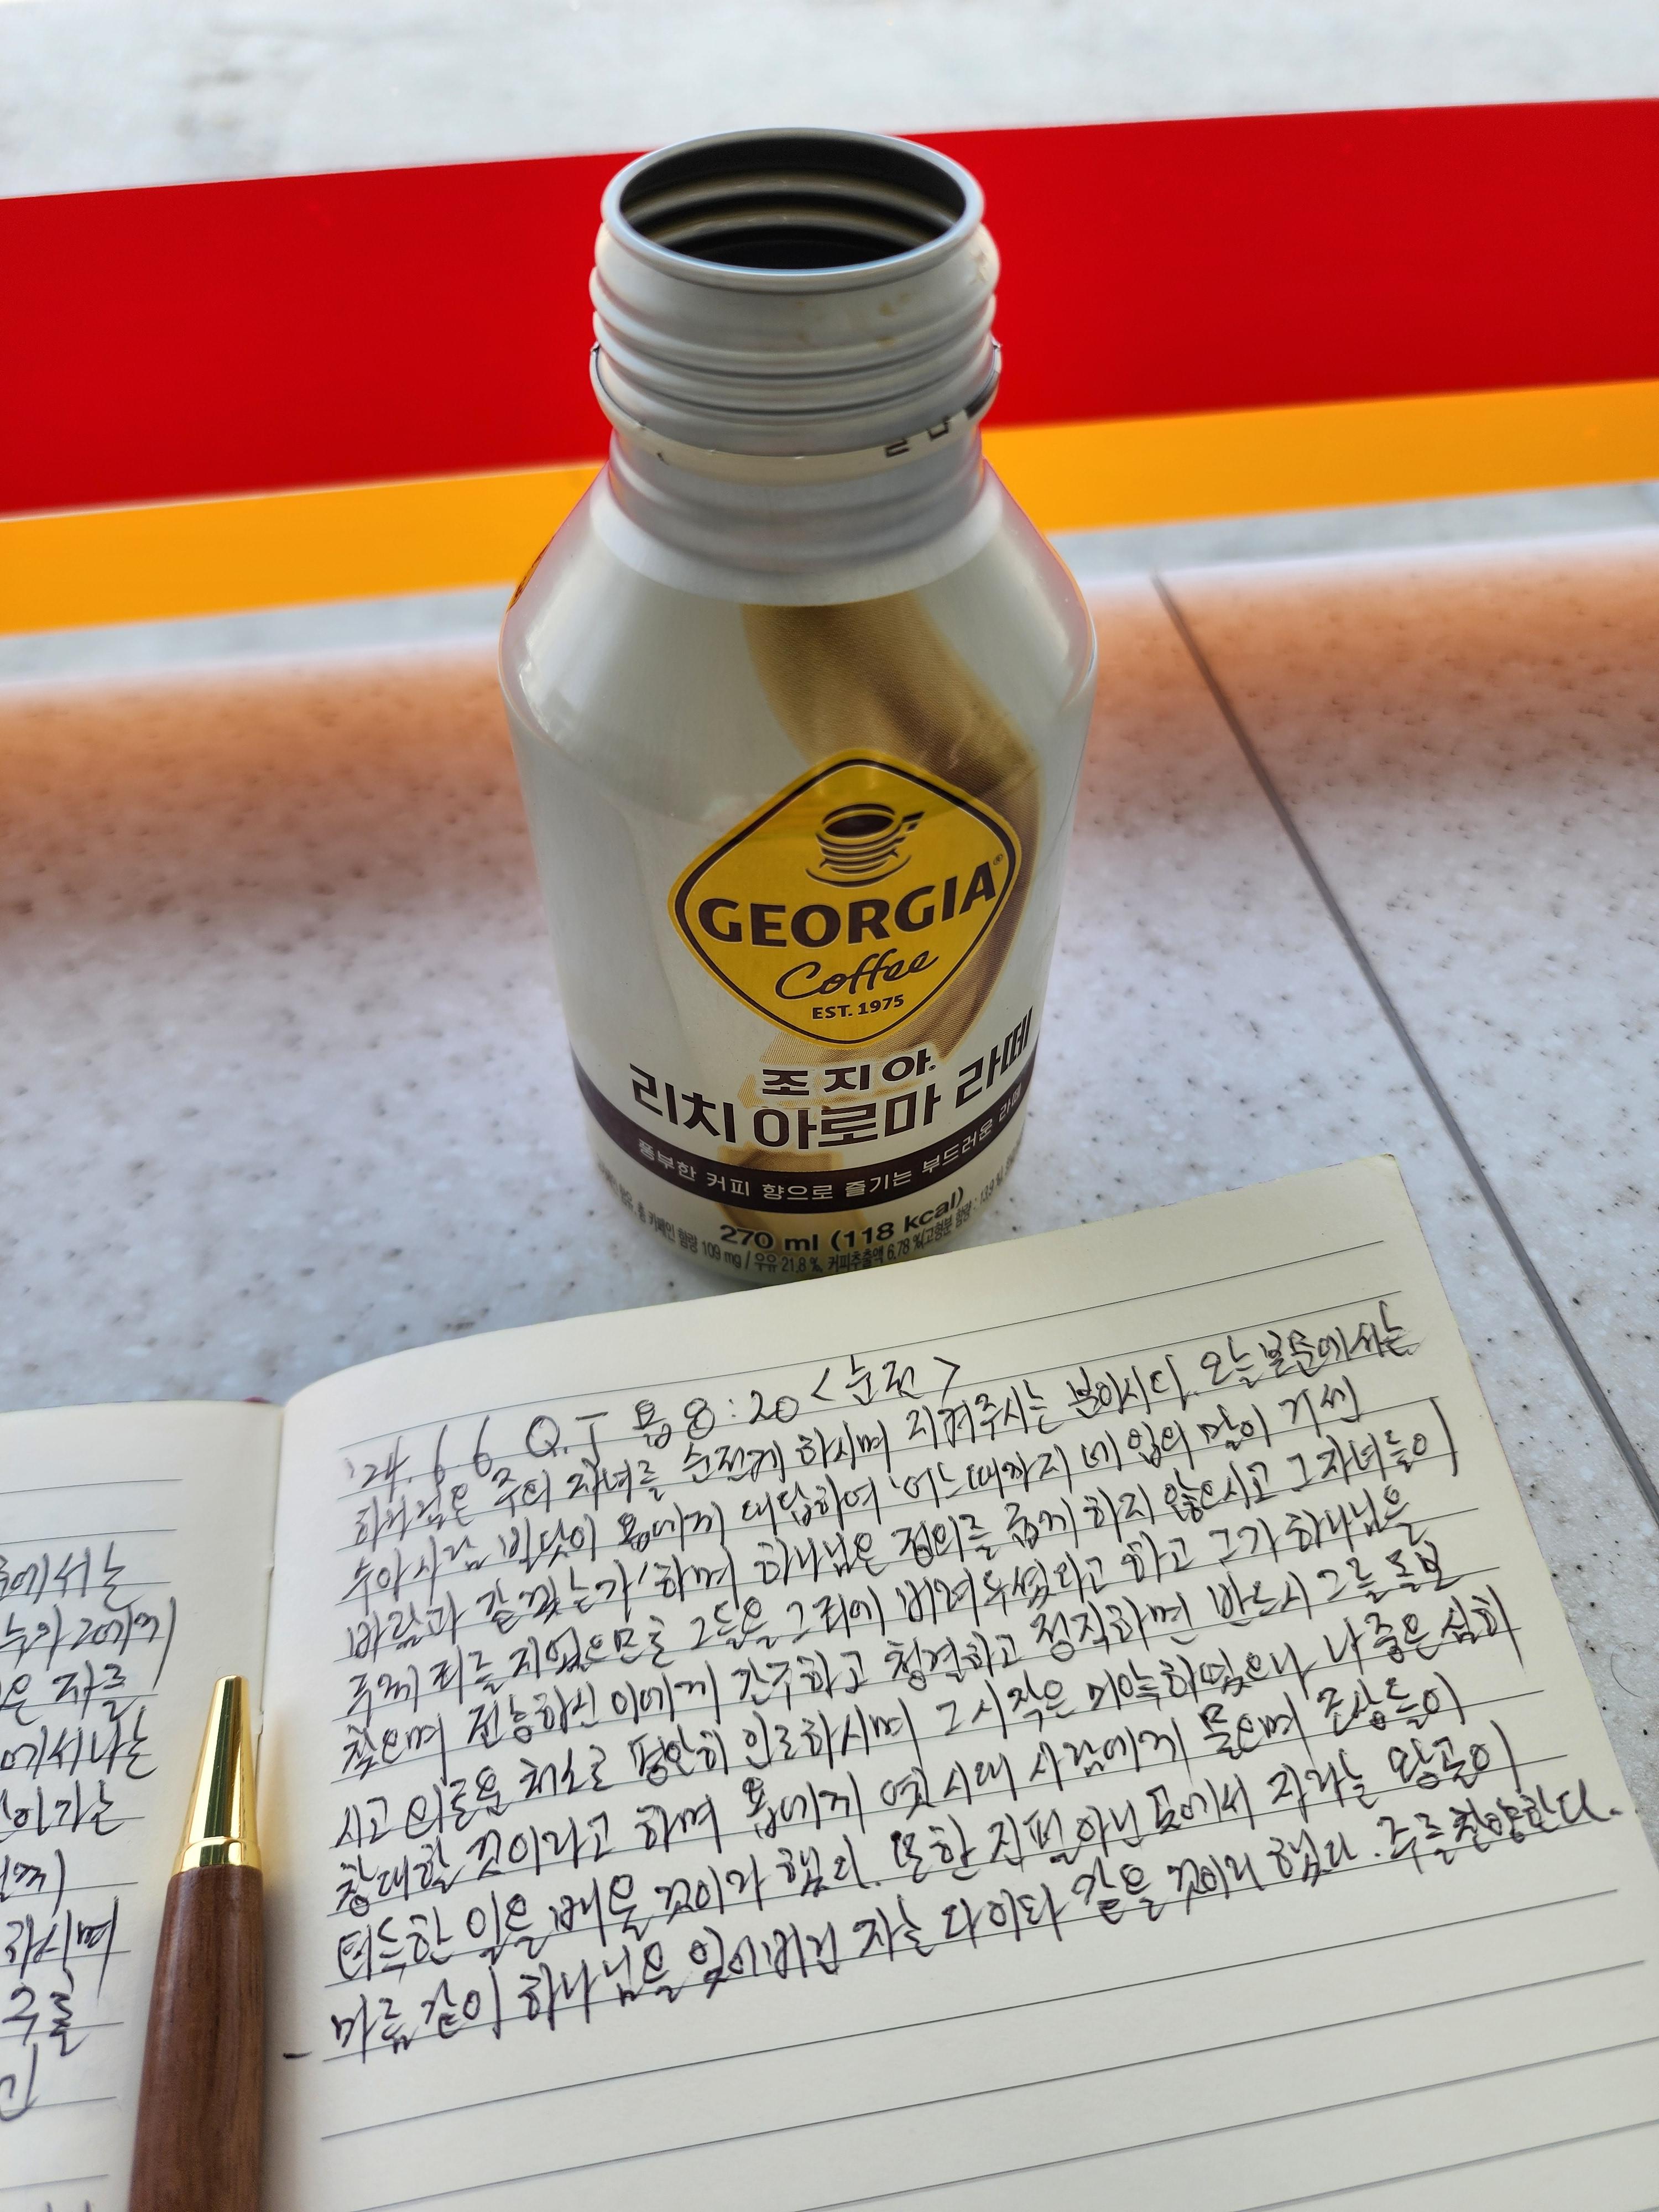 GEORGIA®
Coffee
EST. 1975
조지아
리치 아로마 라떼
풍부한 커피 향으로 즐기는 부드러운 라떼
270 ml (118 kcal)
카페인 함량 109 mg / 우유 21.8 %, 커피추출액 6.78 %(고형분 함량 : 13.9 %,
'24. 6. 6 Q.T 욥 8:20 <순전>
하나님은 주의 자녀를 순전케 하시며 지켜주시는 분이시다. 오늘 본문에서는
수아 사람 빌닷이 욥에게 대답하여 '어느 때까지 네 입의 말이 거센
바람과 같겠는가' 하며 하나님은 정의를 굽게 하지 않으시고 그 자녀들이
주께 죄를 지었으므로 그들을 그 죄에 버려두셨다고 하고 그가 하나님을
찾으며 전능하신 이에게 간구하고 청결하고 정직하면 반드시 그를 돌보
시고 의로운 처소로 평안히 인도하시며 그 시작은 미약하였으나 나중은 심히
창대할 것이라고 하며 욥에게 옛 시대 사람에게 물으며 조상들이
터득한 일을 배울 것이라 했다. 또한 진펄 아닌 곳에서 자라는 왕골이
마름 같이 하나님을 잊어버린 자는 다 이와 같을 것이라 했다. 주를 찬양한다.
에서는
수아
은 자를
에서 나는
이 가는
께
하시며
구를